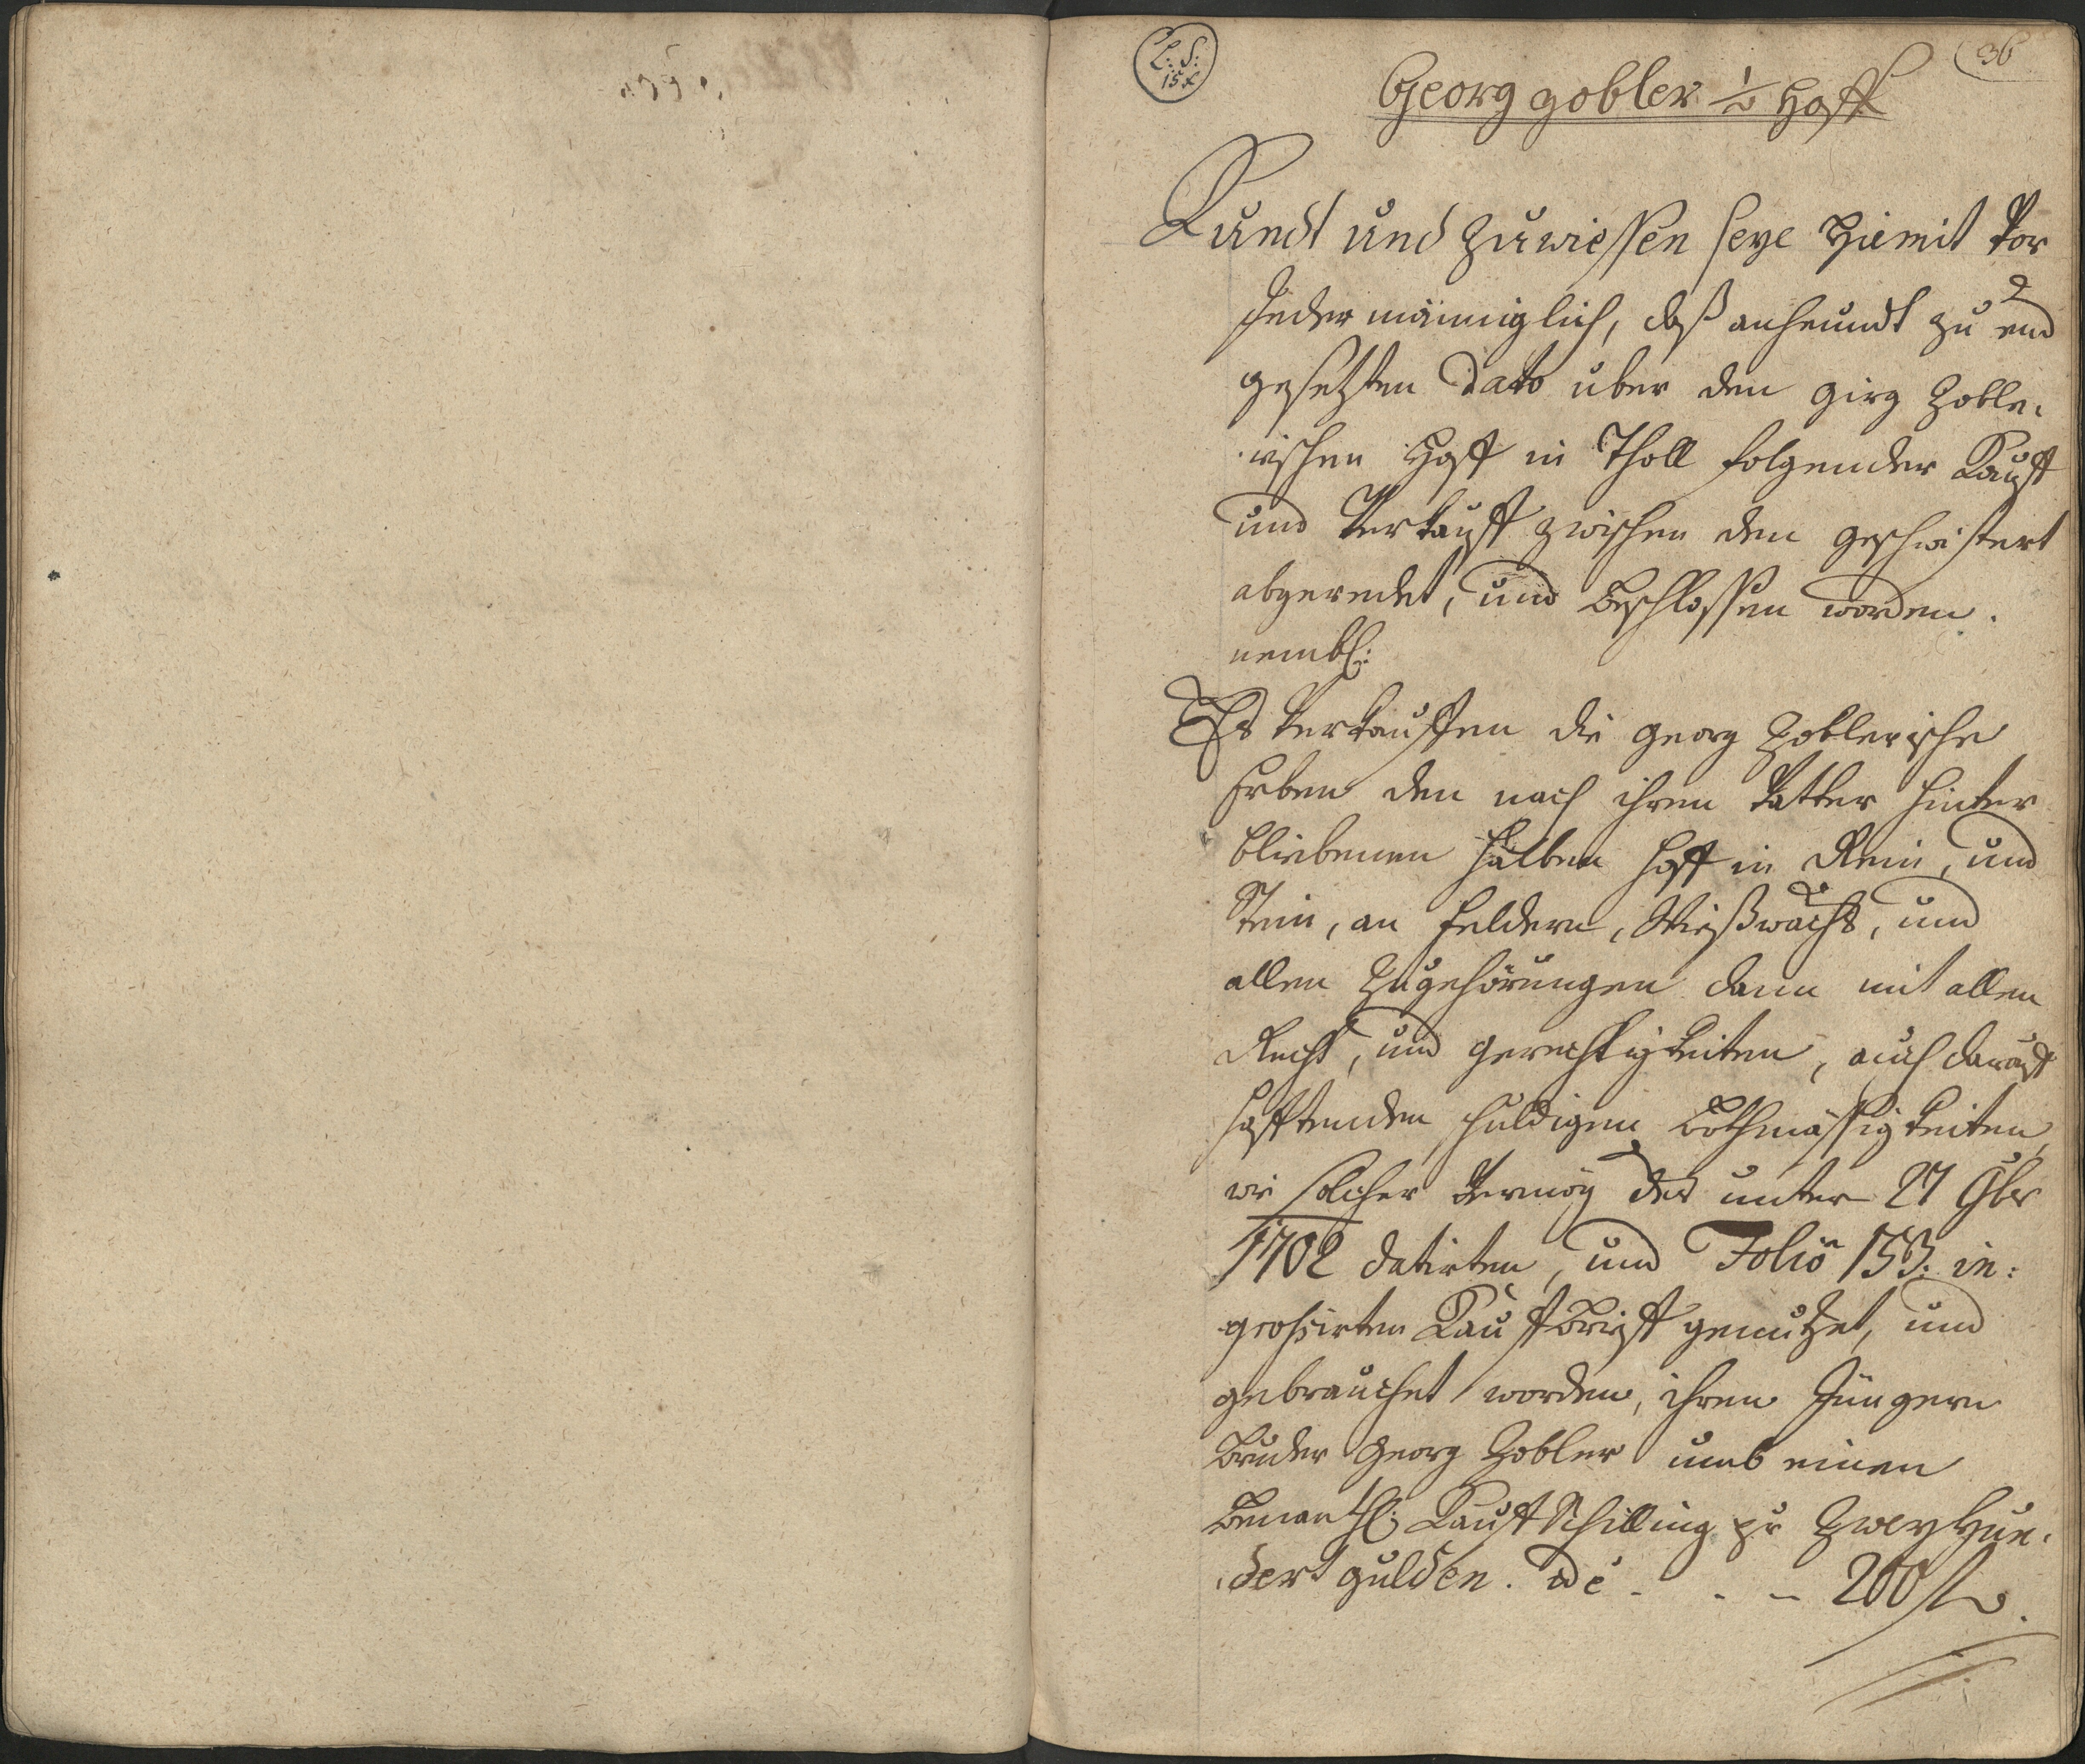 L: S:
15 x
36
Georg Zobler 1/2 Hoff
Kundt und zuwiessen seye hiemit vor
Jeder männiglich, daß anheundt zu end
gesetzten dato über den Girg Zoble-
rischen Hoff in Tholl folgender Kauff
und Verkauff zwischen den geschwistert
abgeredet, und beschlossen worden.
nembl:
Es verkauffen die Georg Zoblerische
Erben den nach ihren Vatter hinter
bliebenen halben Hoff in Rein, und
Stein, an Feldern, Wießwachs, und
allen Zugehörungen dann mit allen
Recht, und gerechtigkeiten, auch darauf
hafftenden schuldigen Bothmässigkeiten,
wie solcher vermög des unter 27 9br
1702 datirten, und Folio 153: in:
grossirten Kauffbrieff genutzet, und
gebrauchet worden, ihren Jüngern
Bruder Georg Zobler umb einen
benantl: Kauff Schilling pr Zweyhun-
dert gulden. id e - - - 200 f